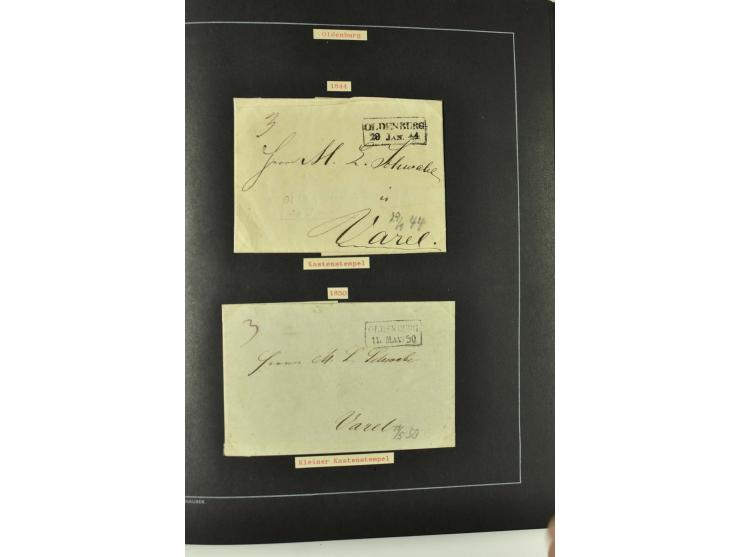 Oldenburg
1844
3
OLDENBURG
29 JAN. 44
Herrn M. L. Schwabe
in
Varel.
29/1 44
Kastenstempel
1850
3
OLDENBURG
11. MAI 50
Herrn M. L. Schwabe
Varel
11/5 50
Kleiner Kastenstempel